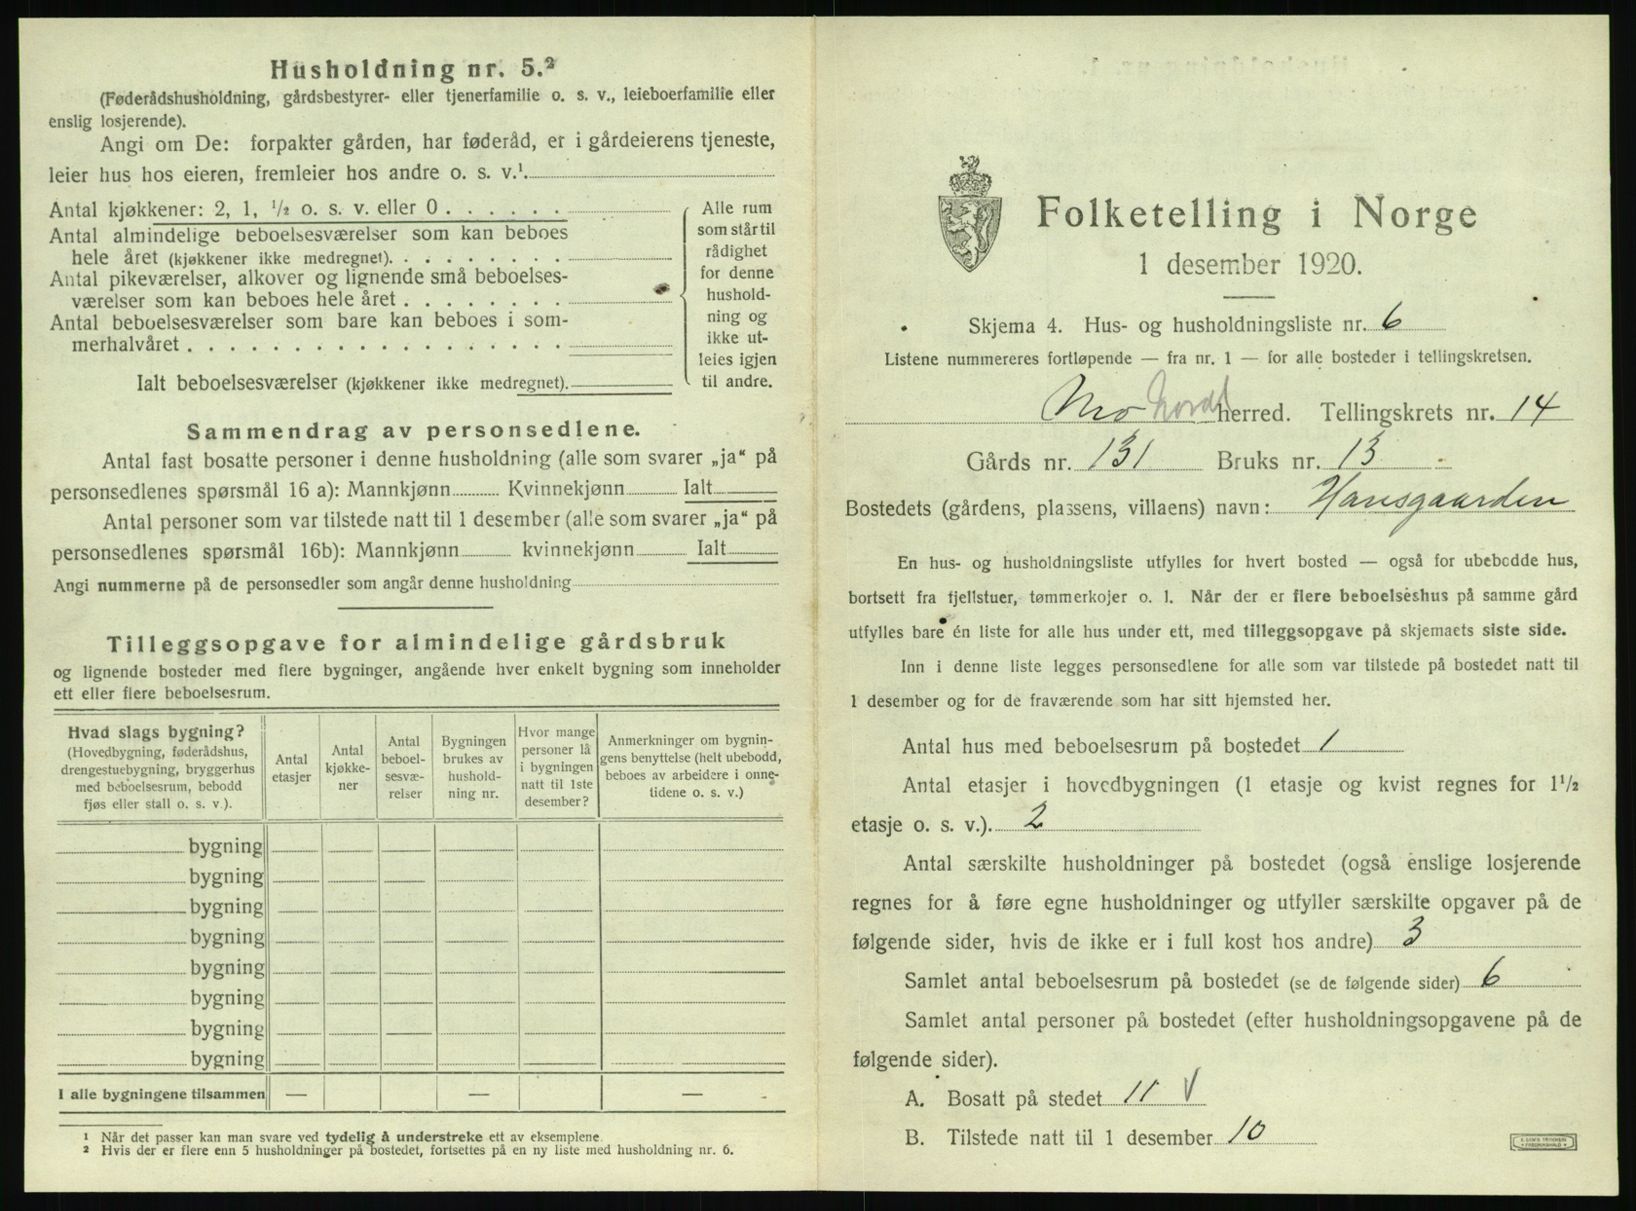 Husholdning nr. 5.²
(Føderådshusholdning, gårdsbestyrer- eller tjenerfamilie o. s. v., leieboerfamilie eller
enslig losjerende).
Angi om De: forpakter gården, har føderåd, er i gårdeierens tjeneste,
leier hus hos eieren, fremleier hos andre o. s. v.¹.
Antal kjøkkener: 2, 1, ½ o. s. v. eller 0 . . . . . .
Antal almindelige beboelsesværelser som kan beboes
hele året (kjøkkener ikke medregnet). . . . . . . . .
Antal pikeværelser, alkover og lignende små beboelses-
værelser som kan beboes hele året . . . . . . . .
Antal beboelsesværelser som bare kan beboes i som-
merhalvåret . . . . . . . . . . . . . . . . . . .
Ialt beboelsesværelser (kjøkkener ikke medregnet).
Alle rum
som står til
rådighet
for denne
hushold-
ning og
ikke ut-
leies igjen
til andre.
Sammendrag av personsedlene.
Antal fast bosatte personer i denne husholdning (alle som svarer „ja“ på
personsedlenes spørsmål 16 a): Mannkjønn Kvinnekjønn Ialt
Antal personer som var tilstede natt til 1 desember (alle som svarer „ja“ på
personsedlenes spørsmål 16b): Mannkjønn kvinnekjønn Ialt
Angi nummerne på de personsedler som angår denne husholdning
Tilleggsopgave for almindelige gårdsbruk
og lignende bosteder med flere bygninger, angående hver enkelt bygning som inneholder
ett eller flere beboelsesrum.
Hvad slags bygning?
(Hovedbygning, føderådshus,
drengestuebygning, bryggerhus
med beboelsesrum, bebodd
fjøs eller stall o. s. v.).
Antal
etasjer
Antal
kjøkke-
ner
Antal
beboel-
sesvæ-
relser
Bygningen
brukes av
hushold-
ning nr.
Hvor mange
personer lå
i bygningen
natt til 1ste
desember?
Anmerkninger om bygnin-
gens benyttelse (helt ubebodd,
beboes av arbeidere i onne-
tidene o. s. v.)
bygning
bygning
bygning
bygning
bygning
bygning
bygning
bygning
I alle bygningene tilsammen — — —
¹ Når det passer kan man svare ved tydelig å understreke ett av eksemplene.
² Hvis der er flere enn 5 husholdninger på bostedet, fortsettes på en ny liste med husholdning nr. 6.
Folketelling i Norge
1 desember 1920.
Skjema 4. Hus- og husholdningsliste nr. 6
Listene nummereres fortløpende — fra nr. 1 — for alle bosteder i tellingskretsen.
Mo Nordl herred. Tellingskrets nr. 14
Gårds nr. 131 Bruks nr. 13
Bostedets (gårdens, plassens, villaens) navn: Hansgaarden
En hus- og husholdningsliste utfylles for hvert bosted — også for ubebodde hus,
bortsett fra fjellstuer, tømmerkojer o. l. Når der er flere beboelseshus på samme gård
utfylles bare én liste for alle hus under ett, med tilleggsopgave på skjemaets siste side.
Inn i denne liste legges personsedlene for alle som var tilstede på bostedet natt til
1 desember og for de fraværende som har sitt hjemsted her.
Antal hus med beboelsesrum på bostedet 1
Antal etasjer i hovedbygningen (1 etasje og kvist regnes for 1½
etasje o. s. v.). 2
Antal særskilte husholdninger på bostedet (også enslige losjerende
regnes for å føre egne husholdninger og utfyller særskilte opgaver på de
følgende sider, hvis de ikke er i full kost hos andre) 3
Samlet antal beboelsesrum på bostedet (se de følgende sider) 6
Samlet antal personer på bostedet (efter husholdningsopgavene på de
følgende sider).
A. Bosatt på stedet 11 V
B. Tilstede natt til 1 desember 10